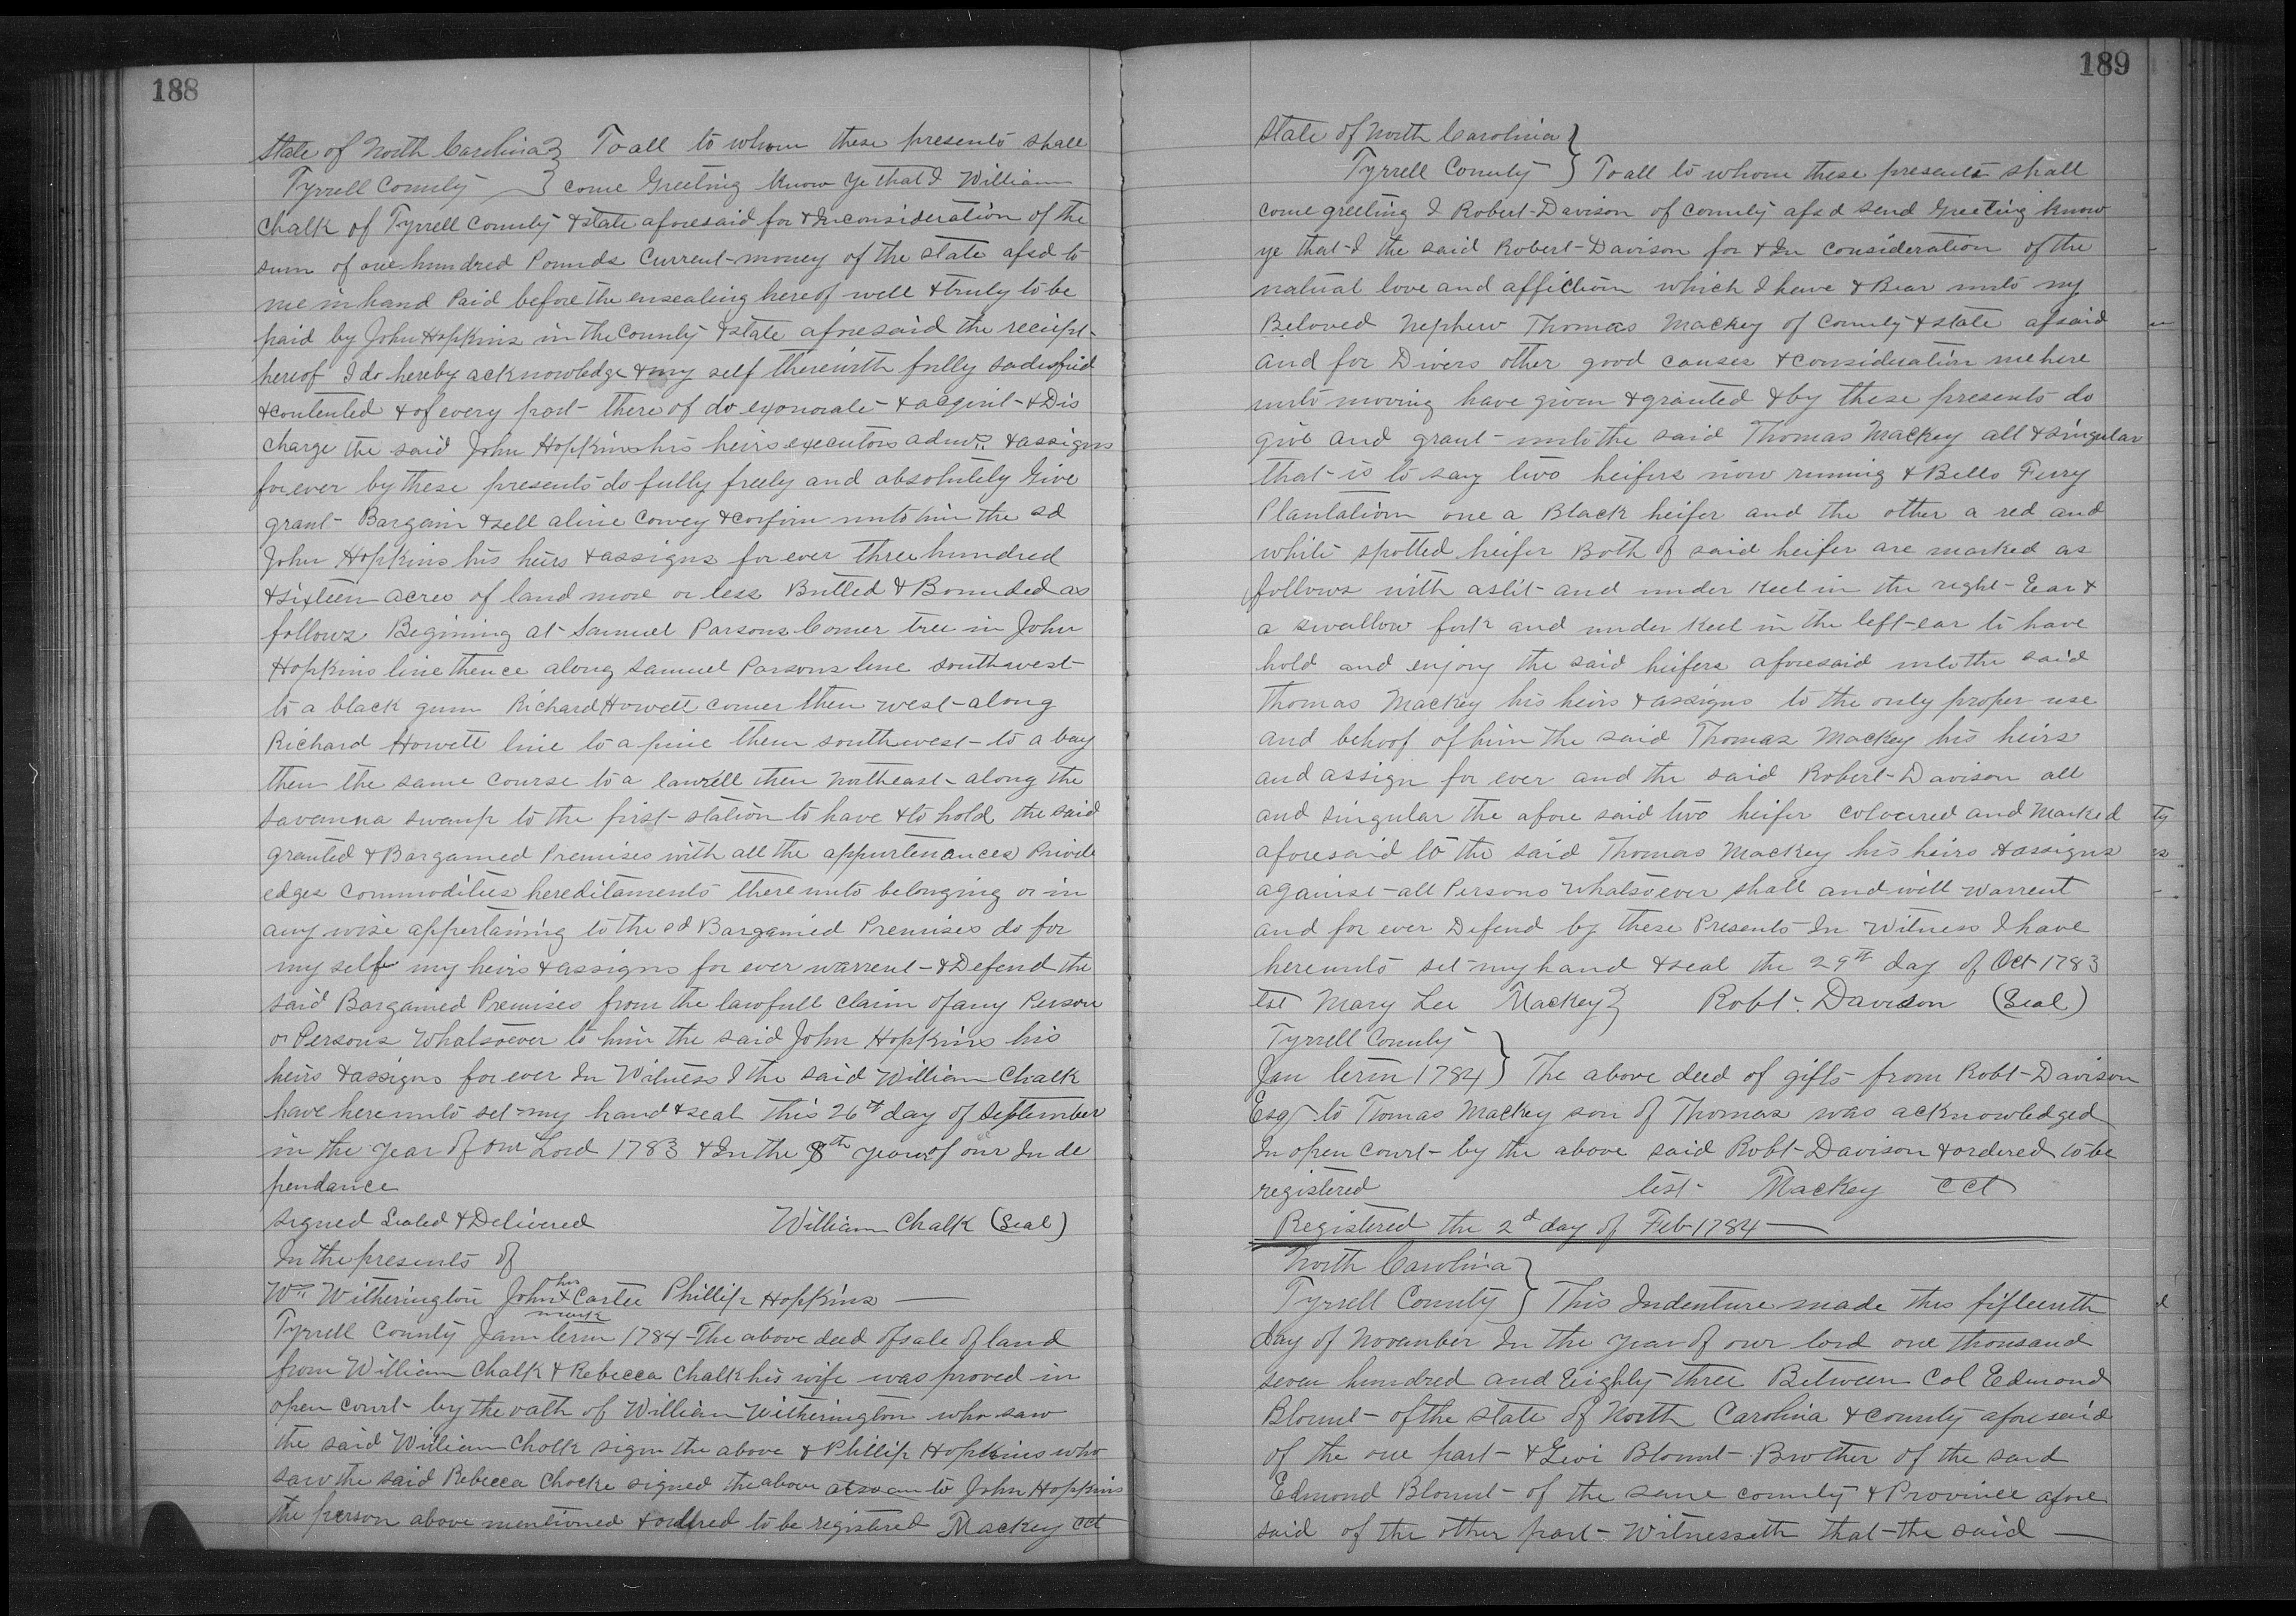 188
State of North Carolina } To all to whom these presents shall
Tyrrell County } come Greeting Know ye that I William
Chalk of Tyrrell County & state aforesaid for & In consideration of the
sum of one hundred Pounds Current money of the state afsd to
me in hand Paid before the ensealing hereof well & truly to be
paid by John Hopkins in the County & state aforesaid the reciept
hereof I do hereby acknowledge & my self therewith fully sadisfied
& contented & of every part there of do exonorate & acquit & Dis
charge the said John Hopkins his heirs executors admrs & assigns
for ever by these presents do fully freely and absolutely Give
grant Bargain & sell aline Convey & confirm unto him the sd
John Hopkins his heirs & assigns for ever three hundred
& sixteen acres of land more or less Butted & Bounded as
follows Begining at Samuel Parsons Corner tree in John
Hopkins line thence along Samuel Parsons line southwest
to a black gum Richard Howett corner then west along
Richard Howett line to a pine then southwest to a bay
then the same course to a lawrell then northeast along the
Savanna swamp to the first station to have & to hold the said
granted & Bargained Premises with all the appurtenances Privile
edges commodities hereditaments there unto belonging or in
any wise appertaining to the sd Bargained Premises do for
my self my heirs & assigns for ever warrent & Defend the
said Bargained Premises from the lawfull claim of any Person
or Persons Whatsoever to him the said John Hopkins his
heirs & assigns for ever In Witness I the said William Chalk
have hereunto set my hand & seal this 26th day of September
in the year of our Lord 1783 & In the 8th year of our Inde
pendance
signed Sealed & Delivered William Chalk (Seal)
In the presents of
Wm Witherington John his x mark Carter Phillip Hopkins
Tyrrell County Jan term 1784 The above deed of sale of land
from William Chalk & Rebecca Chalk his wife was proved in
open court by the oath of William Witherington who saw
the said William Chalk sign the above & Phillip Hopkins who
saw the said Rebecca Chocke signed the above to John Hopkins
the person above mentioned & ordered to be registered Mackey CCt
189
State of North Carolina }
Tyrrell County } To all to whom these presents shall
come greeting I Robert Davison of County afsd send Greeting know
ye that I the said Robert Davison for & In Consideration of the
natual love and affiction which I have & Bear unto my
Beloved Nephew Thomas Mackey of County & state afsaid
and for Divers other good causes & consideration me here
unto moving have given & granted & by these presents do
give and grant unto the said Thomas Mackey all & singular
that is to say two heifers now running & Bells Ferry
Plantation one a Black heifer and the other a red and
white spotted heifer Both of said heifer are marked as
follows with a slit and under Keel in the right Ear &
a swallow fork and under Keel in the left ear to have
hold and enjoy the said heifers aforesaid unto the said
Thomas Mackey his heirs & assigns to the only proper use
and behoof of him the said Thomas Mackey his heirs
and assign for ever and the said Robert Davison all
and singular the afore said two heifer coloured and Marked
aforesaid to the said Thomas Mackey his heirs & assigns
against all Persons whatsoever shall and will warrent
and for ever Defend by these Presents In Witness I have
hereunto set my hand & seal the 29th day of Oct 1783
tst Mary Lee Mackey } Robt. Davison (Seal)
Tyrrell County }
Jan term 1784 } The above deed of gifts from Robt Davison
Esq to Tomas Mackey son of Thomas was acknowledged
In open court by the above said Robt Davison & ordered to be
registered test Mackey CCt
Registered the 2d day of Feb 1784
North Carolina }
Tyrrell County } This Indenture made this fifteenth
day of November In the year of our lord one thousand
seven hundred and Eighty three Between Col Edmond
Blount of the state of North Carolina & county aforesaid
of the one part & Levi Blount Brother of the said
Edmond Blount of the same county & Province afore
said of the other part Witnesseth that the said